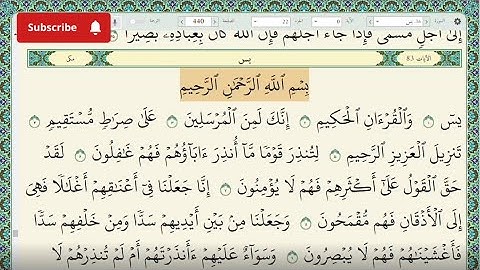 Subscribe
السورة يس الآية 0 الجزء 22 الصفحة 440
إِلَىٰٓ أَجَلٖ مُّسَمّٗىۖ فَإِذَا جَآءَ أَجَلُهُمۡ فَإِنَّ ٱللَّهَ كَانَ بِعِبَادِهِۦ بَصِيرَۢا
الآيات 83 يس مكية
بِسۡمِ ٱللَّهِ ٱلرَّحۡمَٰنِ ٱلرَّحِيمِ
يسٓ ١ وَٱلۡقُرۡءَانِ ٱلۡحَكِيمِ ٢ إِنَّكَ لَمِنَ ٱلۡمُرۡسَلِينَ ٣ عَلَىٰ صِرَٰطٖ مُّسۡتَقِيمٖ ٤
تَنزِيلَ ٱلۡعَزِيزِ ٱلرَّحِيمِ ٥ لِتُنذِرَ قَوۡمٗا مَّآ أُنذِرَ ءَابَآؤُهُمۡ فَهُمۡ غَٰفِلُونَ ٦ لَقَدۡ
حَقَّ ٱلۡقَوۡلُ عَلَىٰٓ أَكۡثَرِهِمۡ فَهُمۡ لَا يُؤۡمِنُونَ ٧ إِنَّا جَعَلۡنَا فِيٓ أَعۡنَٰقِهِمۡ أَغۡلَٰلٗا فَهِيَ
إِلَى ٱلۡأَذۡقَانِ فَهُم مُّقۡمَحُونَ ٨ وَجَعَلۡنَا مِنۢ بَيۡنِ أَيۡدِيهِمۡ سَدّٗا وَمِنۡ خَلۡفِهِمۡ سَدّٗا
فَأَغۡشَيۡنَٰهُمۡ فَهُمۡ لَا يُبۡصِرُونَ ٩ وَسَوَآءٌ عَلَيۡهِمۡ ءَأَنذَرۡتَهُمۡ أَمۡ لَمۡ تُنذِرۡهُمۡ لَا